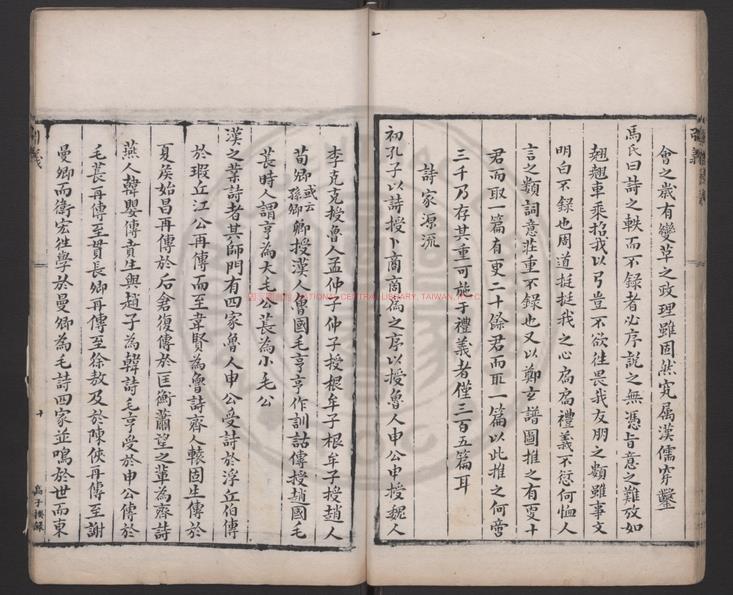 會之歲有變革之政理雖固然究屬漢儒穿鑿
馬氏曰詩之軼而不錄者必序說之無憑旨意之難放如
翹翹車乘招我以弓豈不欲往畏我友朋之類雖事文
明白不錄也周道挺挺我之心扃扃禮義不愆何恤人
言之類詞意莊重不錄也又以鄭玄譜圖推之有更十
君而取一篇有更二十餘君而取一篇以此推之何啻
三千乃存其重可施于禮義者僅三百五篇耳
詩家源流
初孔子以詩授卜商商為之序以授魯人申公申授魏人
李克克授魯人孟仲子仲子授根牟子根牟子授趙人
荀卿或云孫卿卿授漢人魯國毛亨亨作訓詁傳授趙國毛
萇時人謂亨為大毛公萇為小毛公
漢之業詩者其師門有四家魯人申公受詩於浮丘伯傳
於瑕丘江公再傳而至韋賢為魯詩齊人轅固生傳於
夏侯始昌再傳於后倉復傳於匡衡蕭望之輩為齊詩
燕人韓嬰傳賁生與趙子為韓詩毛亨受於申公傳於
毛萇再傳至貫長卿再傳至徐敖及於陳俠再傳至謝
曼卿而衛宏徃學於曼卿為毛詩四家並鳴於世而東
十
NATIONAL CENTRAL LIBRARY, TAIWAN, R.O.C